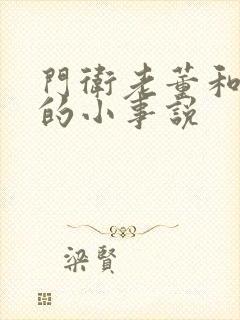 門衛老董和
的小事說
梁賢